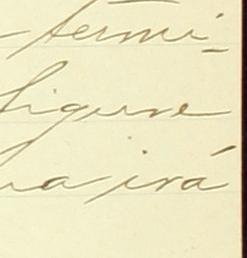 termi-
figure
na irá